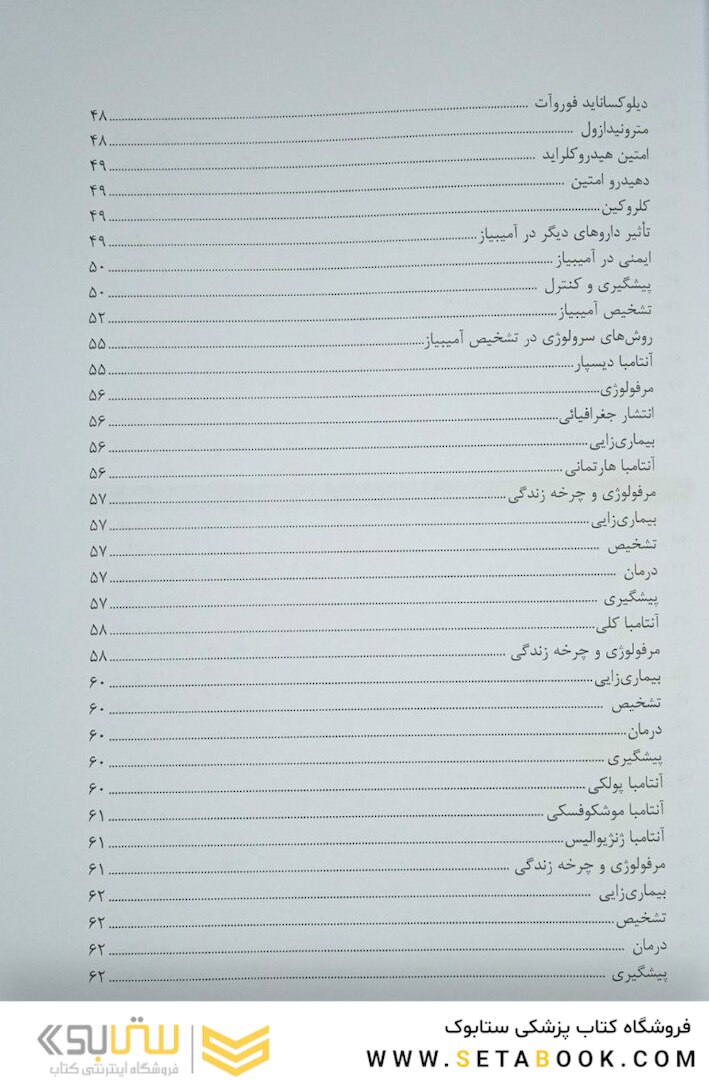 دیلوکساناید فوروآت ........ ۴۸
مترونیدازول ........ ۴۸
امتین هیدروکلراید ........ ۴۹
دهیدرو امتین ........ ۴۹
کلروکین ........ ۴۹
تأثیر داروهای دیگر در آمیبیاز ........ ۴۹
ایمنی در آمیبیاز ........ ۵۰
پیشگیری و کنترل ........ ۵۰
تشخیص آمیبیاز ........ ۵۲
روش‌های سرولوژی در تشخیص آمیبیاز ........ ۵۵
آنتامبا دیسپار ........ ۵۵
مرفولوژی ........ ۵۶
انتشار جغرافیائی ........ ۵۶
بیماری‌زایی ........ ۵۶
آنتامبا هارتمانی ........ ۵۶
مرفولوژی و چرخه زندگی ........ ۵۷
بیماری‌زایی ........ ۵۷
تشخیص ........ ۵۷
درمان ........ ۵۷
پیشگیری ........ ۵۷
آنتامبا کلی ........ ۵۸
مرفولوژی و چرخه زندگی ........ ۵۸
بیماری‌زایی ........ ۶۰
تشخیص ........ ۶۰
درمان ........ ۶۰
پیشگیری ........ ۶۰
آنتامبا پولکی ........ ۶۰
آنتامبا موشکوفسکی ........ ۶۱
آنتامبا ژنژیوالیس ........ ۶۱
مرفولوژی و چرخه زندگی ........ ۶۱
بیماری‌زایی ........ ۶۲
تشخیص ........ ۶۲
درمان ........ ۶۲
پیشگیری ........ ۶۲
فروشگاه کتاب پزشکی ستابوک
WWW.SETABOOK.COM
ستابوک
فروشگاه اینترنتی کتاب